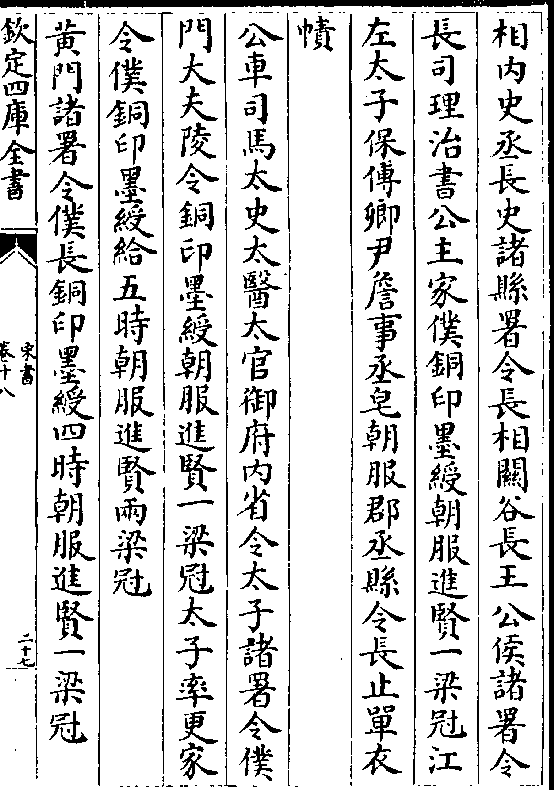 相内史丞長史諸縣署令長相關谷長王公侯諸署令
長司理治書公主家僕銅印墨綬朝服進賢一梁冠江
左太子保傅卿尹詹事丞皂朝服郡丞縣令長止單衣
幘
公車司馬太史太醫太官御府内省令太子諸署令僕
門大夫陵令銅印墨綬朝服進賢一梁冠太子率更家
令僕銅印墨綬給五時朝服進賢兩梁冠
黄門諸署令僕長銅印墨綬四時朝服進賢一梁冠
欽定四庫全書
宋書
卷十八
二十七